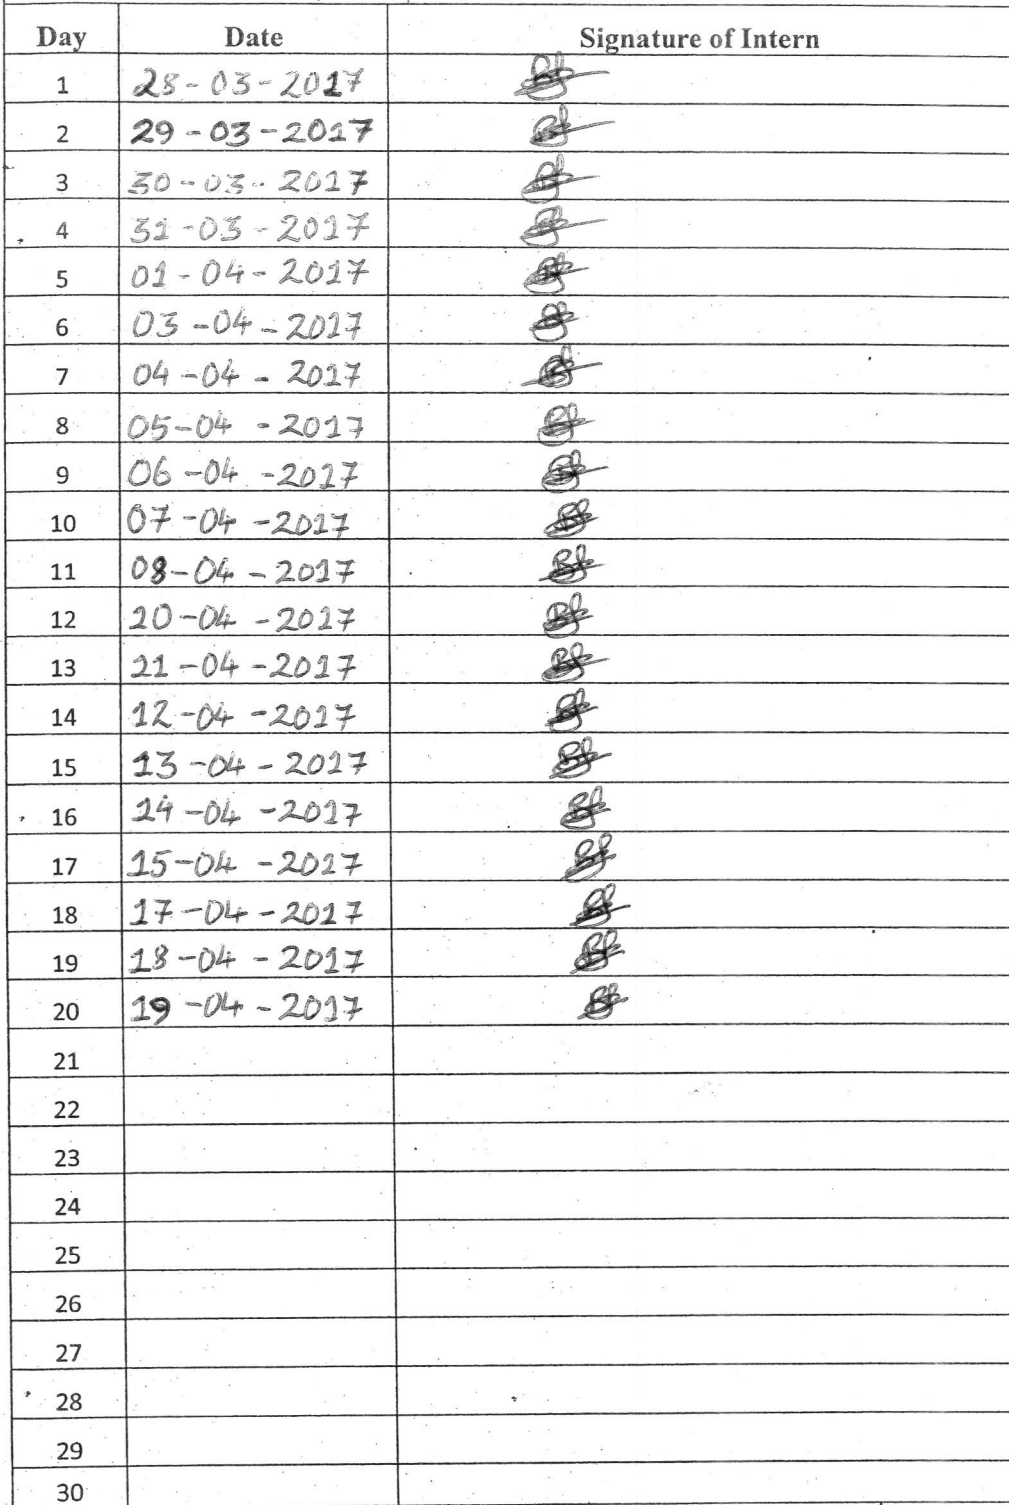 Day Date Signature of Intern
1 28-03-2017
2 29-03-2017
3 30-03-2017
4 31-03-2017
5 01-04-2017
6 03-04-2017
7 04-04-2017
8 05-04-2017
9 06-04-2017
10 07-04-2017
11 08-04-2017
12 10-04-2017
13 11-04-2017
14 12-04-2017
15 13-04-2017
16 14-04-2017
17 15-04-2017
18 17-04-2017
19 18-04-2017
20 19-04-2017
21
22
23
24
25
26
27
28
29
30